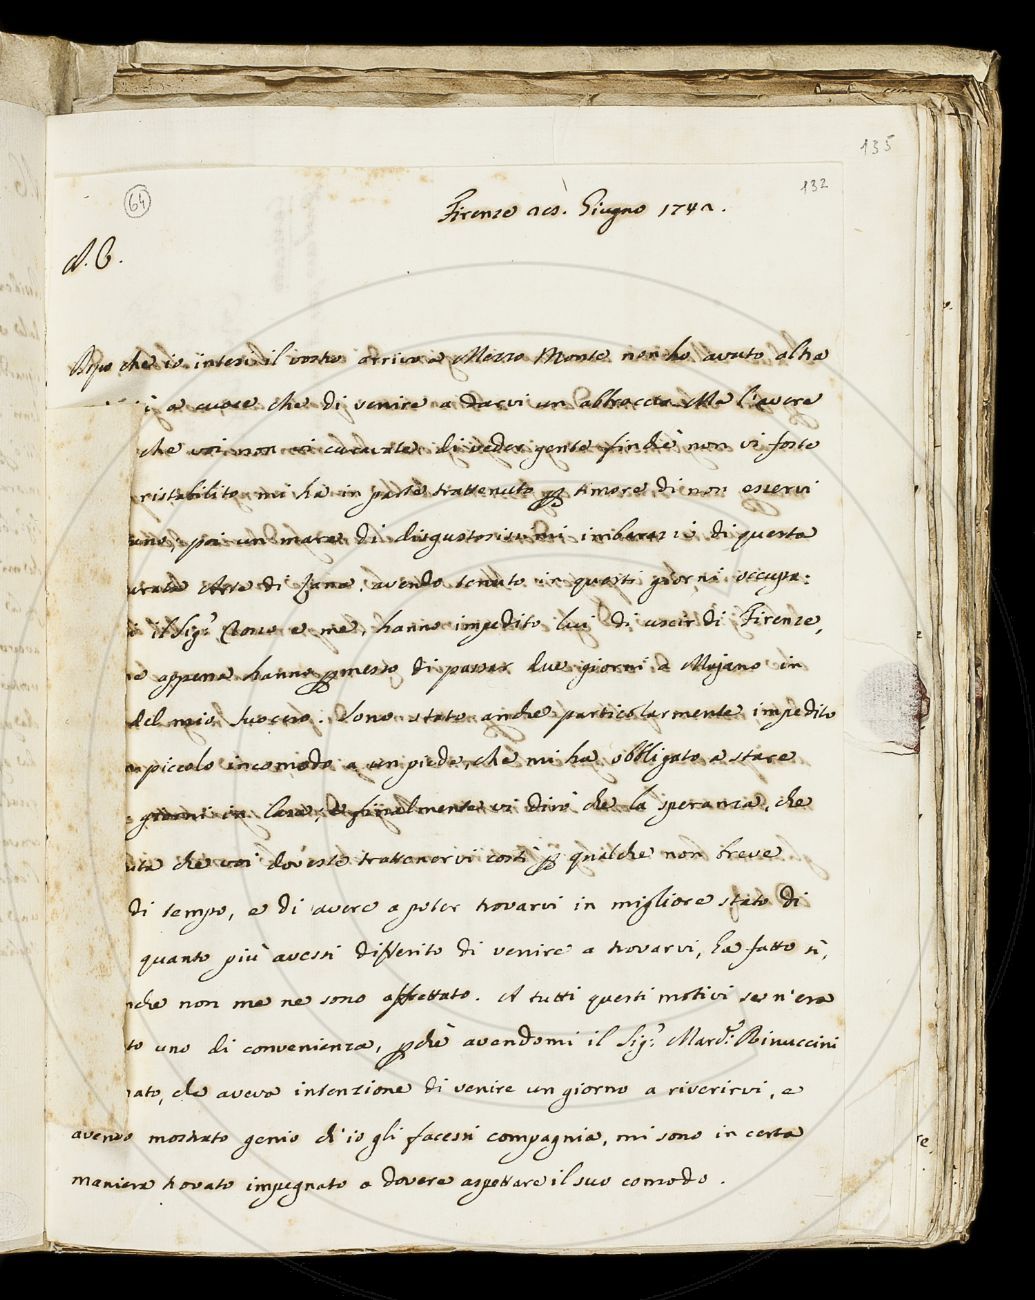 135
132
64
Firenze 28. Giugno 1742.
A. C.
Dopo che io intesi il vostro arrivo a Mezzo Monte non ho avuto altra
a cuore che di venire a darvi un abbraccio. Ma l'avere
che voi non vi curavate di veder gente finchè non vi foste
ristabilito mi ha in parte trattenuto p timore di non esservi
poi un mare di disgustosissimi imbarazzi di questa
Arte di Lana, avendo tenuto in questi giorni occupa=
il Sig.r e me, hanno impedito lui di uscir di Firenze,
e appena hanno pmesso di passar due giorni a Majano in
del mio Suocero. Sono stato anche particolarmente impedito
piccolo incomodo a un piede, che mi ha obbligato a stare
giorni in Casa, e finalmente vi dirò che la speranza, che
che voi doveste trattenervi costì p qualche non breve
di tempo, e di avere a poter trovarvi in migliore stato di
quanto più avessi differito di venire a trovarvi, ha fatto sì,
che non me ne sono affrettato. A tutti questi motivi se n'era
to uno di convenienza, pchè avendomi il Sig.r March.e Rinuccini
ato, che aveva intenzione di venire un giorno a riverirvi, e
avendo mostrato genio ch'io gli facessi compagnia, mi sono in certa
maniera trovato impegnato a dovere aspettare il suo comodo.